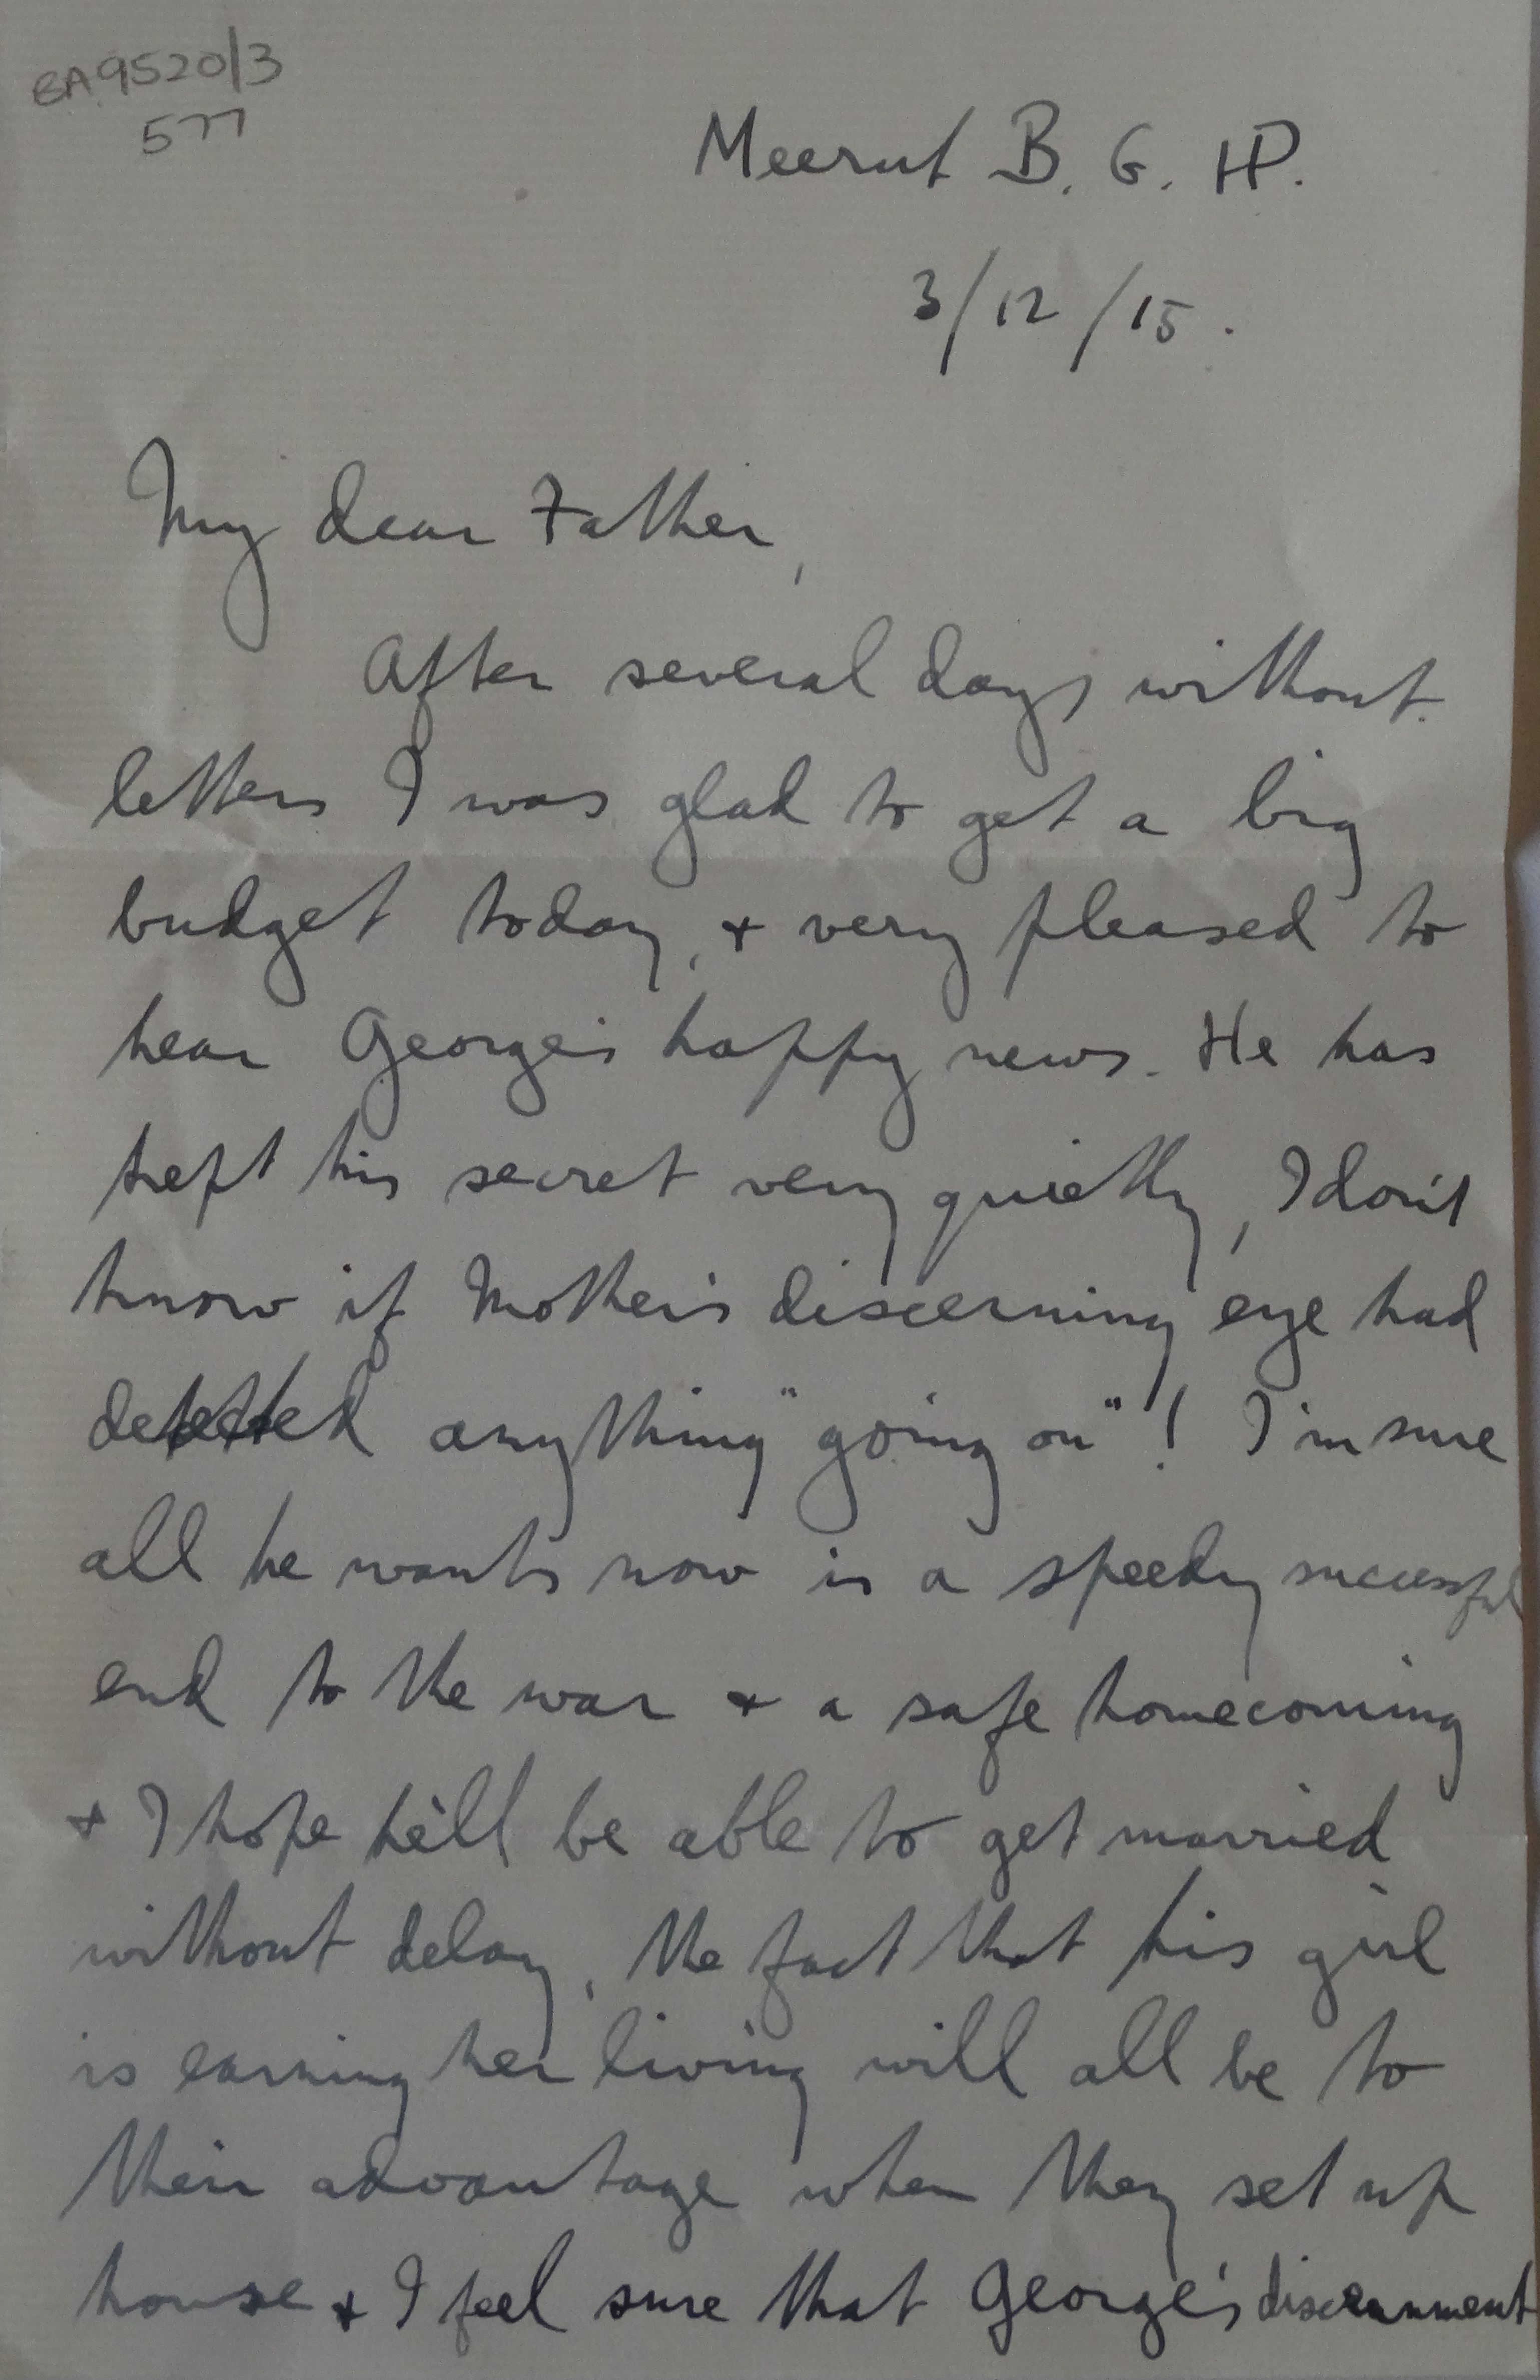 BA 9520/3
577
Meerut B. G. H.
3/12/15.
My dear Father,
After several days without
letters I was glad to get a big
budget today, & very pleased to
hear George's happy news. He has
kept his secret very quietly, I don't
know if Mother's discerning eye had
detected anything "going on"! I'm sure
all he wants now is a speedy successful
end to the war & a safe homecoming
& I hope he'll be able to get married
without delay, the fact that his girl
is earning her living will all be to
their advantage when they set up
house & I feel sure that George's discernment